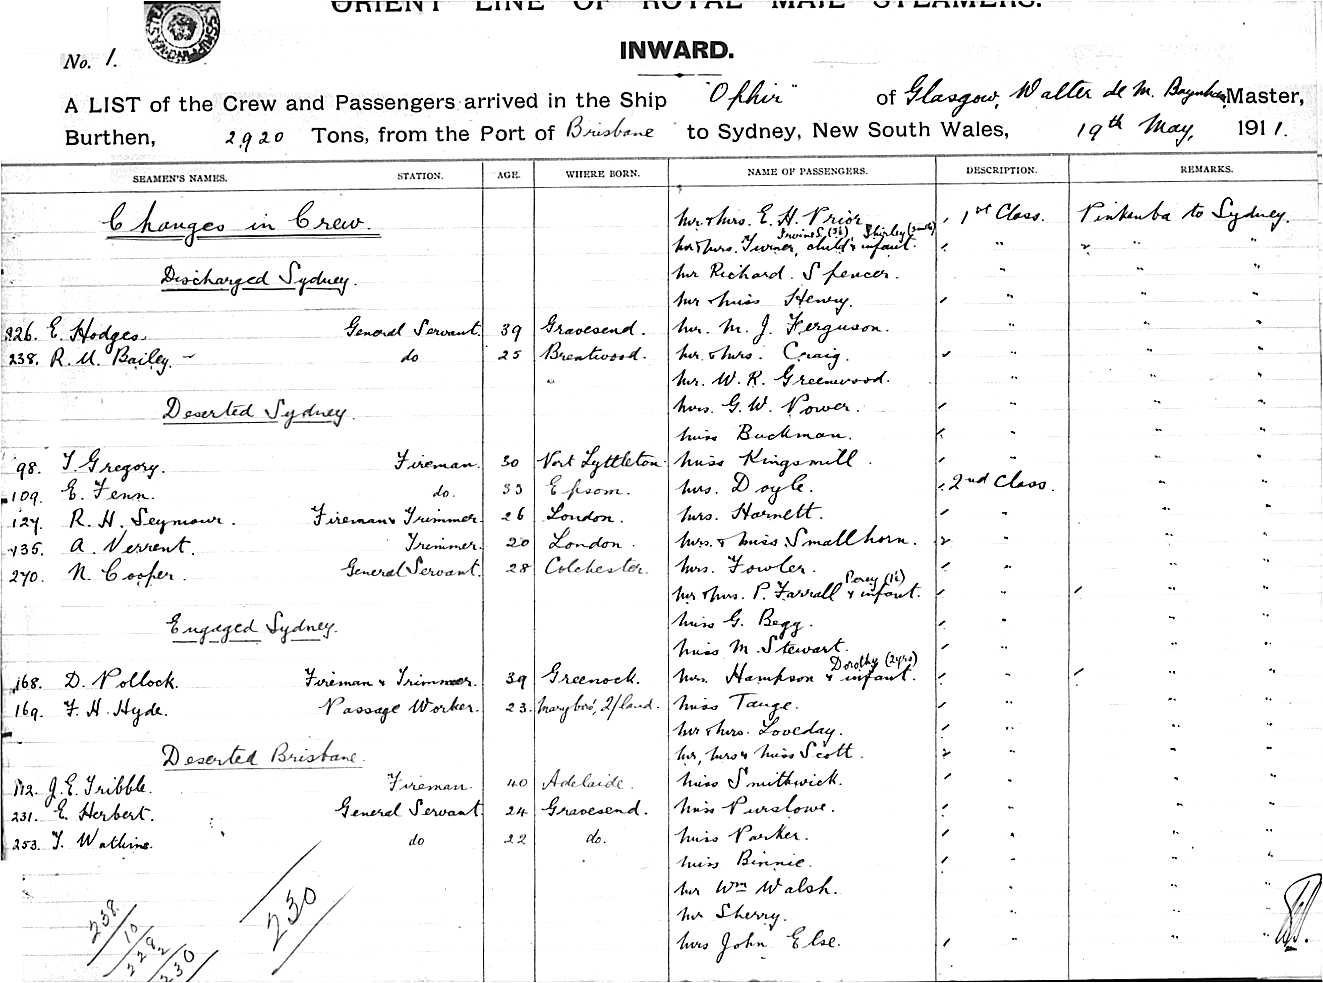 ORIENT LINE OF ROYAL MAIL STEAMERS.
No. 1.
INWARD.
A LIST of the Crew and Passengers arrived in the Ship "Ophir" of Glasgow, Walter de M. Master,
Burthen, 2920 Tons, from the Port of Brisbane to Sydney, New South Wales, 19th May, 1911.
SEAMEN'S NAMES. STATION. AGE. WHERE BORN. NAME OF PASSENGERS. DESCRIPTION. REMARKS.
Changes in Crew.
Discharged Sydney.
226. E. Hodges. General Servant. 39 Gravesend.
238. R. U. Bailey. do 25 Brentwood.
Deserted Sydney.
98. T. Gregory. Fireman. 30 Port Lyttleton
109. E. Fenn. do. 33 Epsom.
127. R. H. Seymour. Fireman & Trimmer. 26 London.
135. A. Verrent. Trimmer. 20 London.
270. N. Cooper. General Servant. 28 Colchester.
Engaged Sydney.
168. D. Pollock. Fireman & Trimmer. 39 Greenock.
169. F. H. Hyde. Passage Worker. 23. Marybro', Q/land.
Deserted Brisbane.
112. J. E. Tribble. Fireman. 40 Adelaide.
231. E. Herbert. General Servant 24 Gravesend.
253. T. Watkins. do 22 do.
238.
10
229
2
230
230
Mr & Mrs. E. H. Prior 1st Class. Pinkenba to Sydney.
Shirley
Mr & Mrs. Turner, child & infant. " " "
Mr Richard Spencer. " " "
Mr & Miss Henry. " " "
Mr. M. J. Ferguson. " " "
Mr. & Mrs. Craig. " " "
Mr. W. R. Greenwood. " " "
Mrs. G. W. Power. " " "
Miss Buckman. " " "
Miss Kingsmill. " " "
Mrs. Doyle. 2nd Class. " "
Mrs. Harnett. " " "
Mrs. & Miss Smallhorn. " " "
Mrs. Fowler. " " "
Percy
Mr & Mrs. P. Farrall & infant. " " "
Miss G. Begg. " " "
Miss M. Stewart. " " "
Dorothy (2yrs)
Mrs. Hampson & infant. " " "
Miss Tange. " " "
Mr & Mrs. Loveday. " " "
Mr, Mrs & Miss Scott. " " "
Miss Smithwick. " " "
Miss Purslowe. " " "
Miss Parker. " " "
Miss Binnie. " " "
Mr Wm Walsh. " " "
Mr Sherry. " " "
Mrs John Else. " "